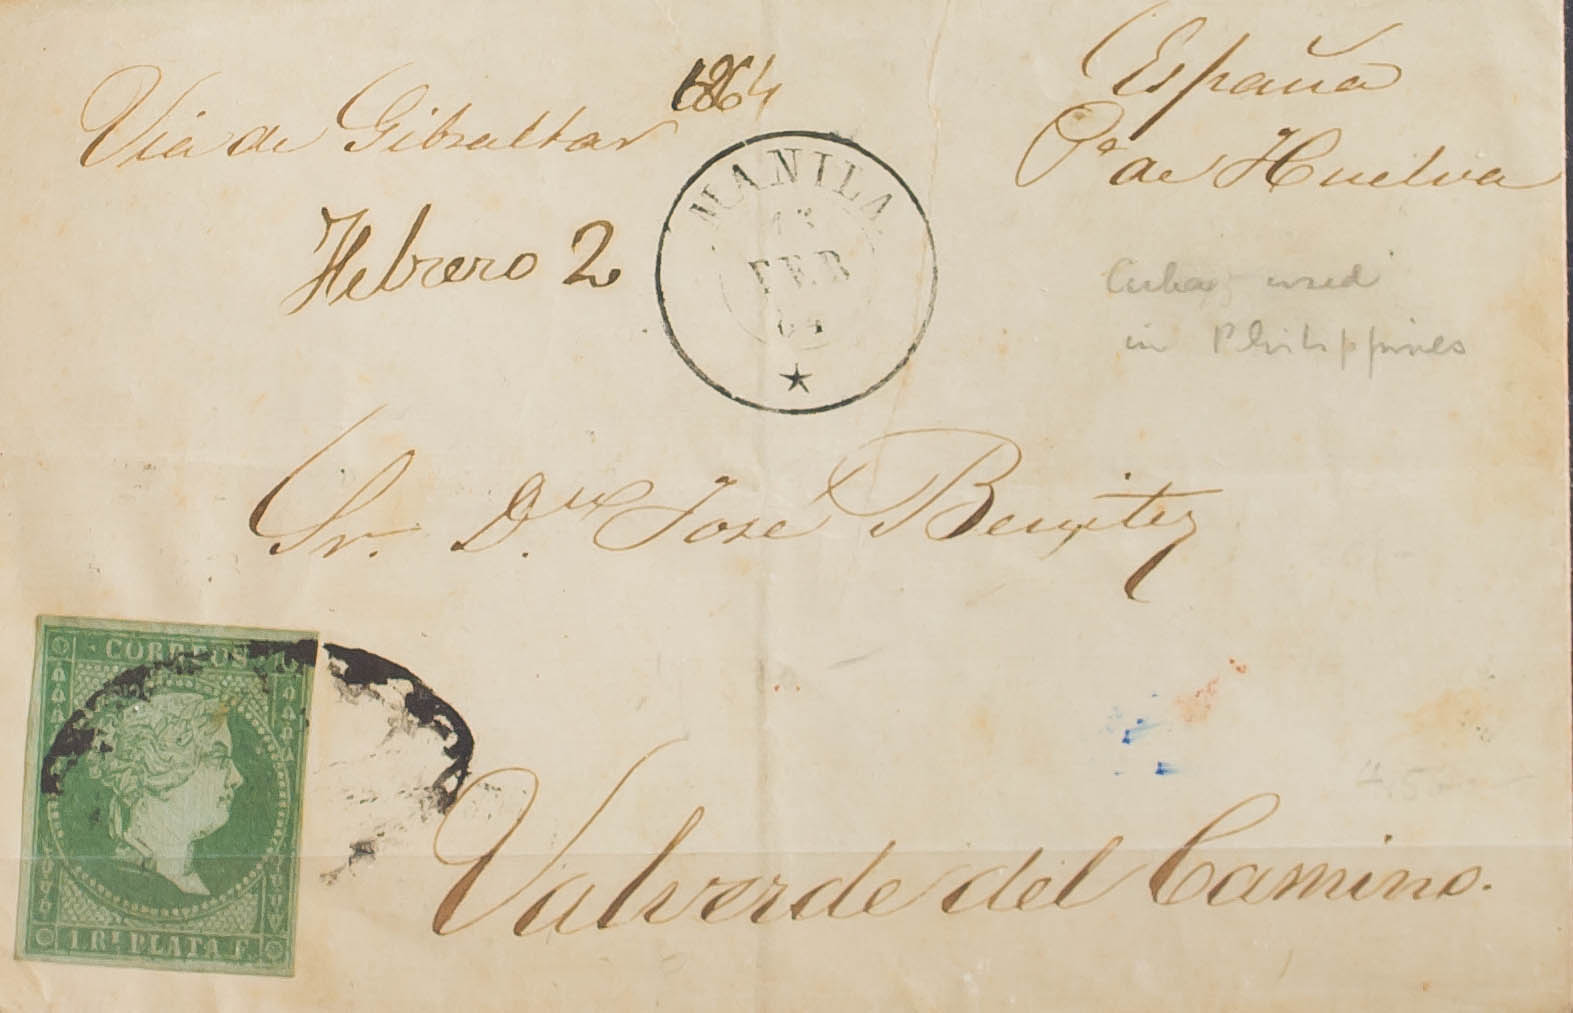 Via de Gibraltar
1864
España
Pª de Huelva
Febrero 2
MANILA
13
FEB
64
Cuba, used
in Philippines
Sr. Dn. Jose Benitez
CORREOS
1 Rl PLATA F.
Valverde del Camino.